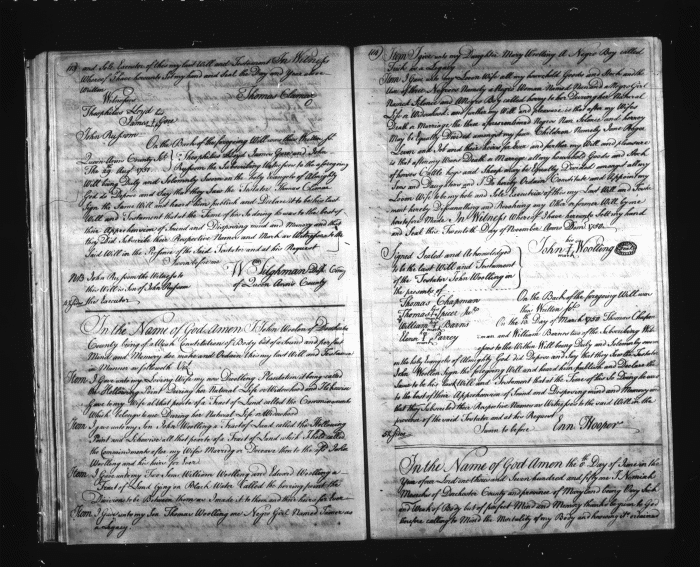 113 and Sole Executor of this my last Will and Testament In Witness
Whereof I have hereunto set my hand and seal the Day and Year above
Written
Witness Thomas Clemmon
Theophilus Lloyd
James Gore
John Rassom
On the Back of the foregoing Will was thus Written
Queen Anns County Sct Theophilus Lloyd James Gore and John
The 29 Augt 1751 Rassom the Subscribing Witnesses to the aforegoing
Will being Duly and Solemnly Sworn on the Holy Evangels of Almighty
God do Depose and Say that they Saw the Testator Thomas
Sign the above Will and heard him publish and Declare it to be his last
Will and Testament that at the Time of his So doing he was to the best of
their Apprehensions of Sound and Disposing mind and Memory and that
they Did Subscribe their Respective Names and Mark as Witnesses to the
said Will in the presence of the said Testator and at his Request
Sworn before
NB John Rassom the Witness to W Tilghman Dept Comy
this Will is Son of John Rassom of Queen Anns County
this Executor
In the Name of God Amen I John Woolen of Dorchester
County being of a Weak Constitution of Body but of a sound and perfect
Mind and Memory do make and Ordain this my last Will and Testament
in Manner as followeth Viz
Item I Give unto my Loving Wife my now Dwelling plantation it being called
the During her Natural Life or Widowhood and likewise
I give to my Wife all that part of a Tract of Land called the
Which belongs to me During her Natural Life or Widowhood
Item I give unto my Son John Woolling a Tract of Land called the
Point and Likewise all that part of a Tract of Land which I hold called
the after my Wifes Marriage or Decease then to the sd John
Woolling and his heirs for Ever
Item I Give unto my Two Sons William Woolling and Edward Woolling a
Tract of Land lying on Black Water Called the
Division to be Between them as I made it to them and their heirs for Ever
Item I Give unto my Son Thomas Woolling one Negro Girl Named as
a Legacy
114 Item I give unto my Daughter Mary Woolling A Negro Boy called
Jack as a Legacy
Item I Give unto my Loven Wife all my household Goods and Stock and the
Use of three Negroes Namely a Negro Woman Named Nan and a Negro Girl
Named and a Negro Boy called to her During her Natural
Life or Widowhood and further my Will and pleasure is that after my Wifes
Death or Marriage the then aforementioned Negroes Nan and
May be Equally Divided amongst my four Children Namely Jane Roger
and their heirs for Ever and further my Will and pleasure
is that after my Wifes Death or Marriage all my household Goods and Stock
of horses Cattle hogs and Sheep may be Equally Divided amongst all my
Sons and Daughters and I Do hereby Ordain Constitute and Appoint my
Loven Wife to be my hole and Sole Executrix of this my Last Will and Testa
ment hereby Disannulling and Revoking any Other former Will by me
heretofore Made In Witness Whereof I have hereunto Sett my hand
and Seal this Twentieth Day of November Anno Domi 1750
Signed Sealed and Acknowledged John his mark Woolling
to be the Last Will and Testament
of the Testator John Woolling in
the presents of
Thomas Chapman On the Back of the foregoing Will was
Thomas thus Written
William Barns On the 12 Day of March 1750 Thomas Chap
Elonor Parrey man and William Barns two of the Subscribing Wit
nesses to the Within Will being Duly and Solemnly sworn
on the holy Evangels of Almighty God did Depose and Say that they Saw the Testator
John Wollin Sign the foregoing Will and heard him publish and Declare the
Same to be his Last Will and Testament that at the time of his So Doing he was
to the best of their Apprehension of Sound and Disposing mind and Memory and
that they Subscribed their Respective Names as Witnesses to the said Will in the
presence of the said Testator and at his Request
Sworn to before Enn Hooper
In the Name of God Amen the 6 Day of June in the
Year of our Lord one thous Seven hundred and fifty one I
of Dorchester County and province of Maryland being Very Sick
and Weak of Body but of perfect Mind and Memory thanks be given to God
therefore calling to Mind the Mortality of my Body and knowing it is ordained